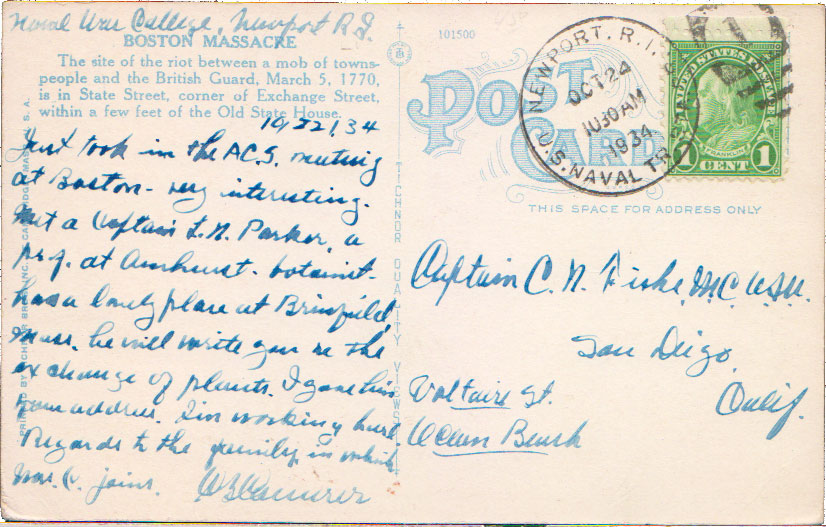 Naval War College, Newport R.I.
BOSTON MASSACRE
The site of the riot between a mob of towns-
people and the British Guard, March 5, 1770,
is in State Street, corner of Exchange Street,
within a few feet of the Old State House.
10/22/34
Just took in the A.C.S. meeting
at Boston - very interesting.
Met a Captain L.N. Parker, a
prof. at Amhurst - botanist -
has a lovely place at Brimfield,
Mass. he will write you re the
exchange of plants. I gave him
your address. Im working hard.
Regards to the family in which
Mrs. C. joins.
PRINTED BY TICHNOR BROS. INC. CAMBRIDGE, MASS. U. S. A.
TICHNOR QUALITY VIEWS
101500
POST
CARD
NEWPORT, R.I.
OCT 24
10 30 AM
1934
U.S. NAVAL TR.
UNITED STATES POSTAGE
FRANKLIN
1 CENT 1
THIS SPACE FOR ADDRESS ONLY
Captain C. N. Fiske, M.C. U.S.N.
San Diego
Voltaire St. Calif.
Ocean Beach